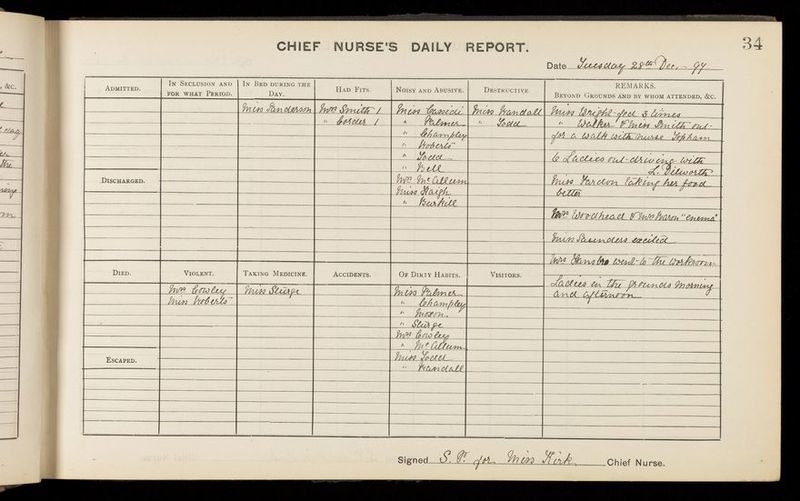 34
CHIEF NURSE'S DAILY REPORT.
Date Tuesday 28th Dec. 97
, &c.
ADMITTED.
IN SECLUSION AND FOR WHAT PERIOD.
IN BED DURING THE DAY.
HAD FITS.
NOISY AND ABUSIVE.
DESTRUCTIVE
REMARKS.
BEYOND GROUNDS AND BY WHOM ATTENDED, &C.
Miss Sanderson
Mrs Smith 1
" Corder 1
Miss Cassidi
" Palmer
" Champley
" Roberts
" Todd
" Bell
Mrs McCallum
Miss Haigh
" Burkill
Miss Randall
" Todd
Miss Wright fed 3 times
" Walker & Miss Smith out
for a walk with nurse Topham
6 Ladies out driving with
L. Dilworth
Miss Fardon taking her food
better
Mrs Woodhead & Mrs Baron "enema"
Miss Saunders excited
Mrs went to the Workroom
Ladies in the grounds morning
and afternoon
DISCHARGED.
DIED.
VIOLENT.
TAKING MEDICINE.
ACCIDENTS.
OF DIRTY HABITS.
VISITORS.
Mrs Cowley
Miss Roberts
Miss Sturge
Miss Palmer
" Champley
" Moxon
" Sturge
Mrs Cowley
" McCallum
Miss Todd
" Randall
ESCAPED.
Signed S. P. for Miss Kirk, Chief Nurse.